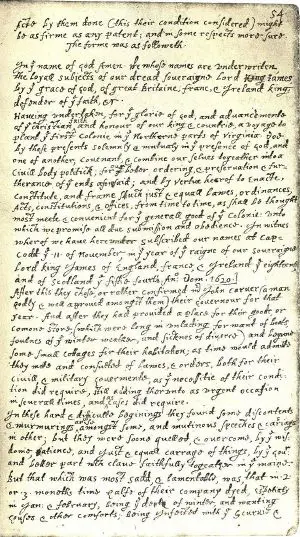 54
facte by them done (this their condition considered) might
be as firme as any patent; and in some respects more sure.
The forme was as followeth.
In yͤ name of god Amen. We whose names are underwriten,
the loyall subjects of our dread soveraigne Lord King James
by yͤ grace of god, of great Britaine, franc, & Ireland king,
defender of yͤ faith, &c.
Haveing undertaken, for yͤ glorie of god, and advancemente
of yͤ christian faith and honour of our king & countrie, a voyage to
plant yͤ first colonie in yͤ Northerne parts of Virginia. Doe
by these presents solemnly & mutualy in yͤ presence of god, and
one of another, covenant, & combine our selves togeather into a
Civill body politick; for our better ordering, & preservation & fur-
therance of yͤ ends aforesaid; and by vertue hearof to enacte,
constitute, and frame shuch just & equall Lawes, ordinances,
Acts, constitutions, & offices, from time to time, as shall be thought
most meete & convenient for yͤ generall good of yͤ Colonie: unto
which we promise all due submission and obedience. In witnes
wherof we have hereunder subscribed our names at Cap-
Codd yͤ 11 of November, in yͤ year of yͤ raigne of our soveraigne
Lord king James of England, france, & Ireland yͤ eighteenth
and of Scotland yͤ fiftie fourth. Ano: Dom. 1620.
After this they chose, or rather confirmed mr John Carver (a man
godly & well approved amongst them) their Governour for that
year. And after they had provided a place for their goods or
comone store, (which were long in unlading for want of boats,
foulnes of yͤ winter weather, and sicknes of diverce) and begune
some small cottages for their habitation; as time would admitte
they mette and consulted of lawes, & orders, both for their
civill & military govermente, as yͤ necessitie of their condi-
tion did require, still adding therunto as urgent occasion
in severall times, and as cases did require.
In these hard & difficulte beginings they found some discontents
& murmurings arise amongst some, and mutinous speeches & carriags
in other; but they were soone quelled, & overcome, by yͤ wis-
dome, patience, and just & equall carrage of things, by yͤ Govr
and better part wch clave faithfully togeather in yͤ maine.
But that which was most sadd, & lamentable, was, that in 2.
or 3. moneths time halfe of their company dyed, espetialy
in Jan: & february, being yͤ depth of winter, and wanting
houses & other comforts; being infected with yͤ scurvie &